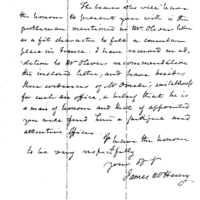 The bearer who will have
the honour to present you with is the
gentleman mentioned in Mr Oliver's letter
as a fit character to fill a consular
place in France. I have received in ad
dition to Mr Oliver's recommendations
the inclosed letter, and have besides
other evidences of Mr
for such an office, being that he is
a man of honour and that if appointed
you will find him a judicious and
attentive officer.
I have the honour
to be very respectfully
your
James McHenry